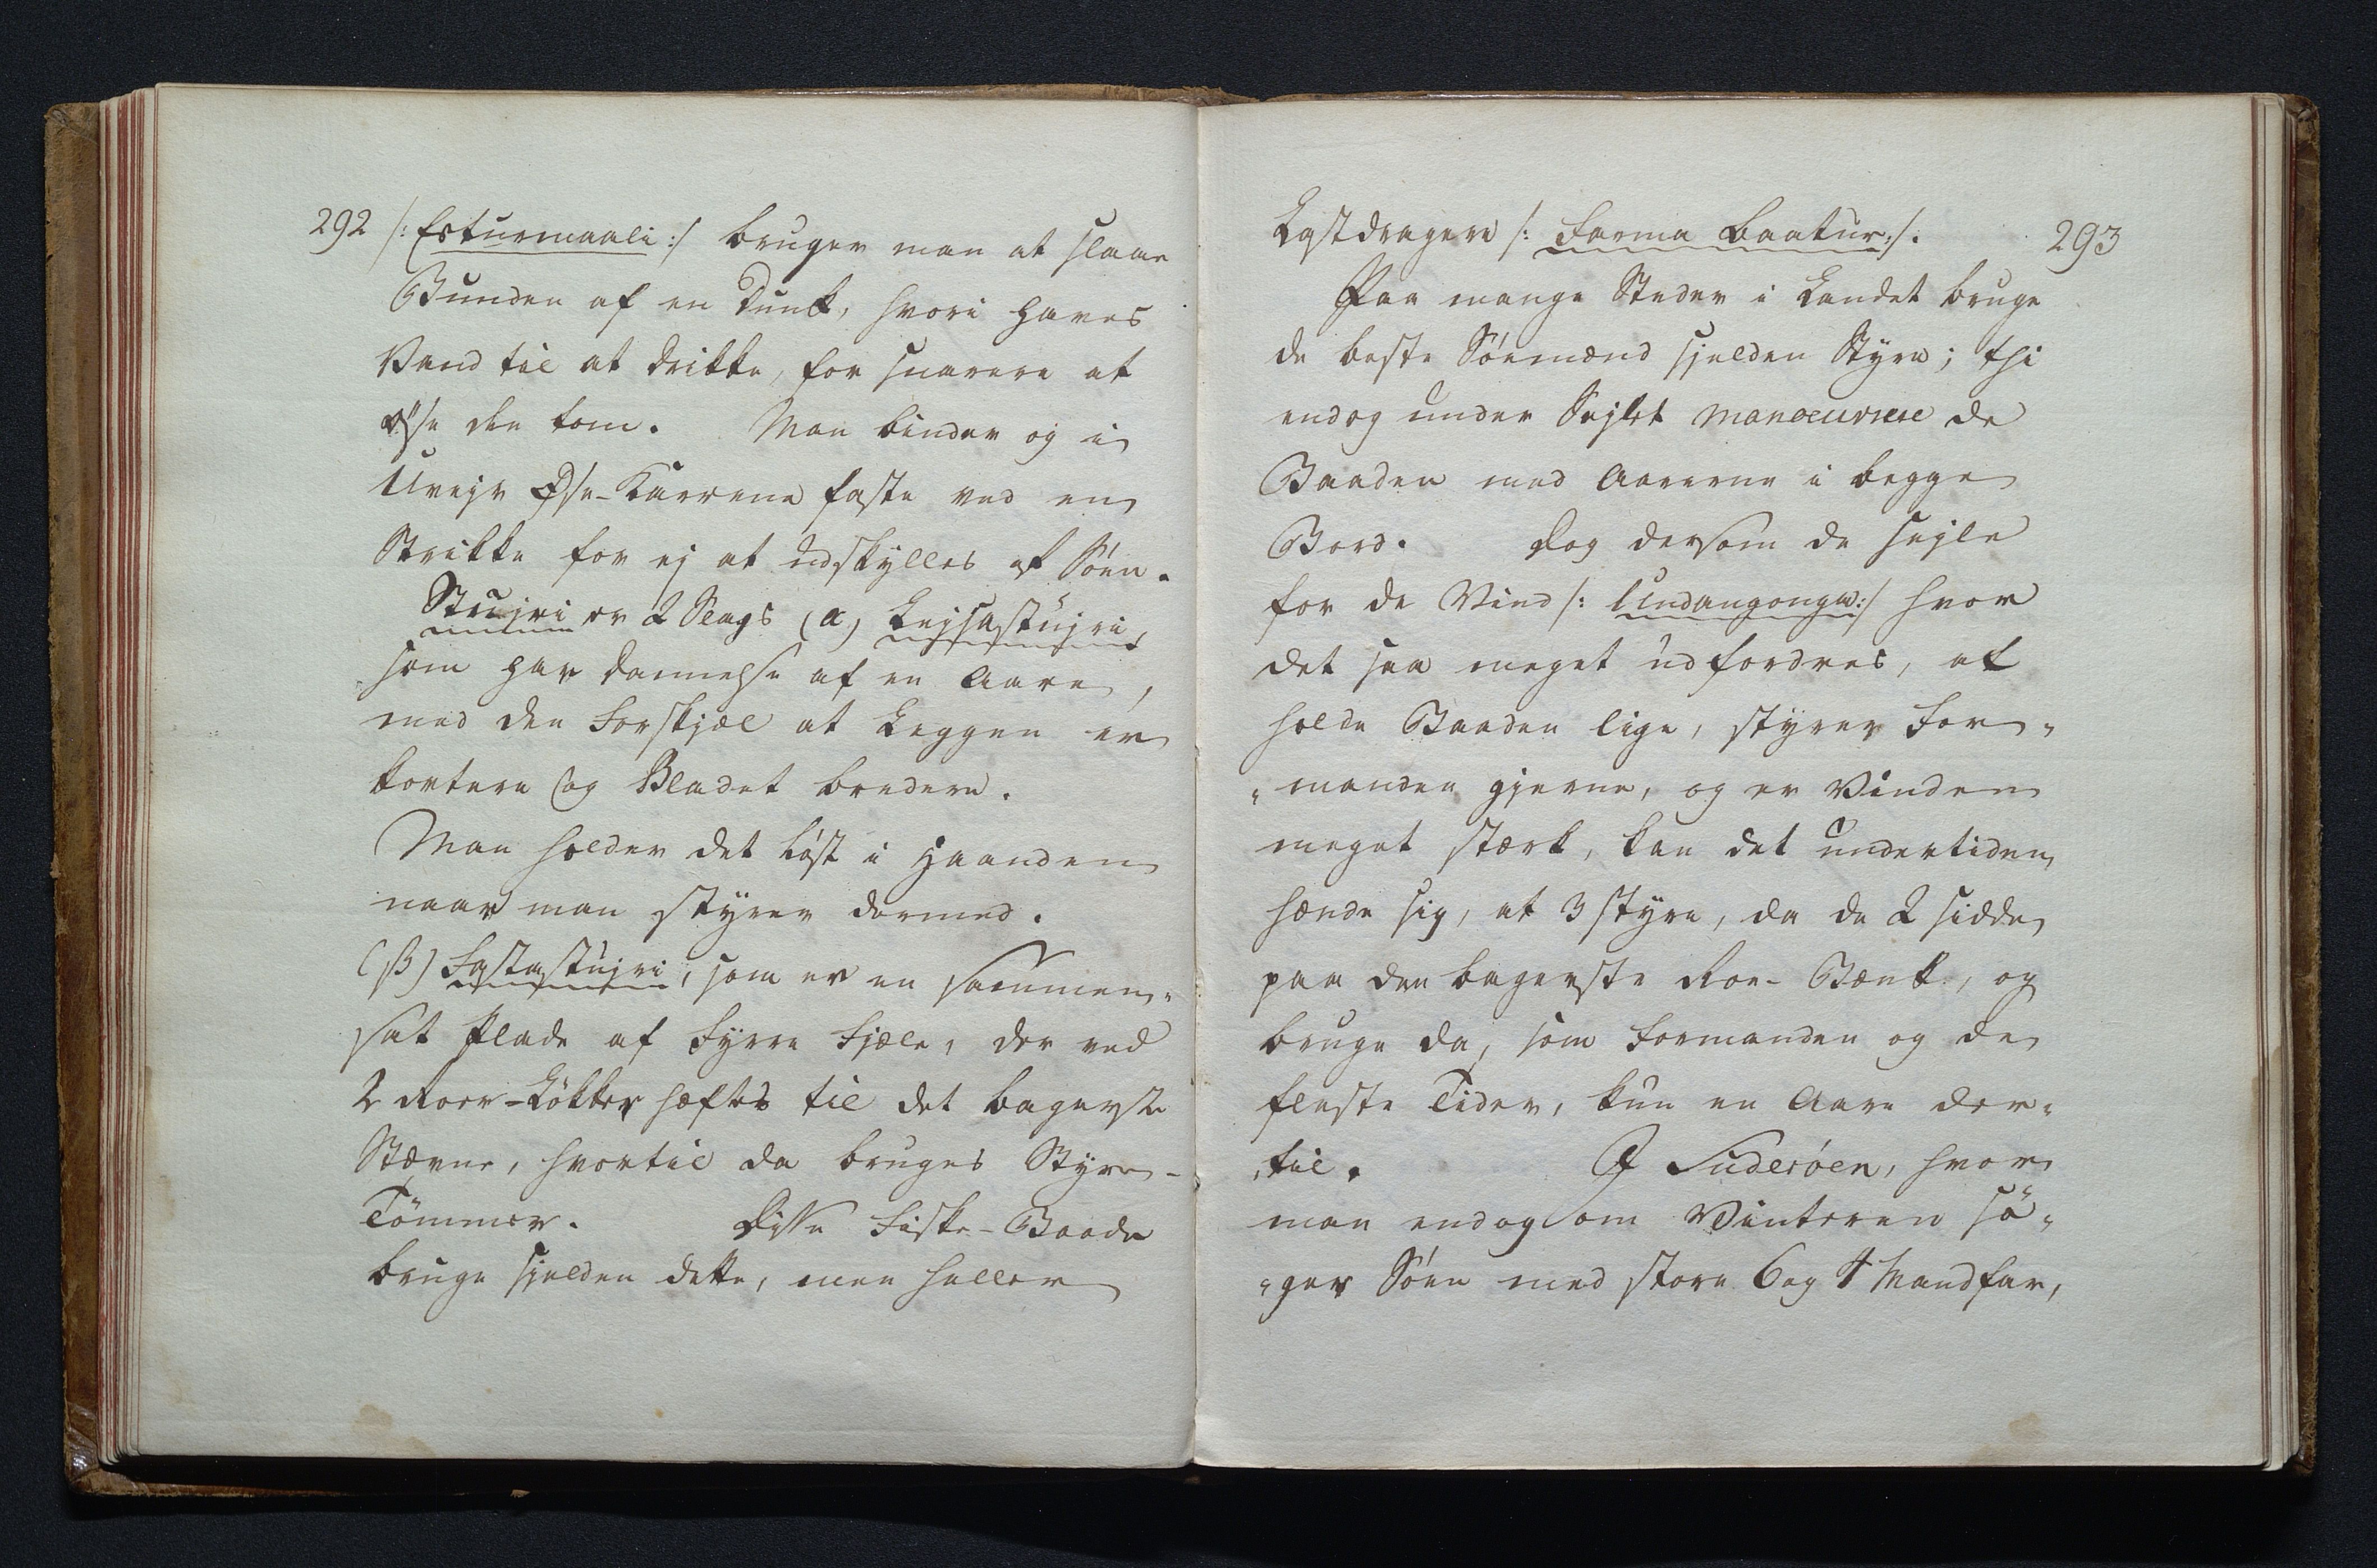 292
/: Esturmaali :/ bruger man at slaae
Bunden af en Dunk, hvori haves
Vand til at drikke, for snarere at
øse den tom. Man binder og i
Uvejr Øse-Karrene faste ved en
Strikke for ej at udskylles af Söen.
Stujri er 2 Slags (α) Lejsastujri,
som har Dannelse af en Aare,
med den Forskjæl at Leggen er
kortere og Bladet bredere.
Man holder det löst i Haanden
naar man styrer dermed.
(β) Fastastujri, som er en sammen-
sat Plade af Fyrre Fjæle, der ved
2 Roer-Lökker hæftes til det bagerste
Stævne, hvortil da bruges Styre-
Tömmer. Disse Fiske-Baade
bruge sjelden dette, men heller
293
Lastdragere /: Farma Baatur :/.
Paa mange Steder i Landet bruge
de beste Söemænd sjelden Styre; thi
endog under Sejlet manoeuvrere de
Baaden med Aarerne i begge
Bord. Dog dersom de sejle
for de Vind /: Undangonga :/ hvor
det saa meget udfordres, at
holde Baaden lige, styrer For-
manden gjerne, og er Vinden
meget stærk, kan det undertiden
hænde sig, at 3 styre, da de 2 sidde
paa den bagerste Roe-Bænk, og
bruge da, som Formanden og de
fleste Tider, kun en Aare der-
til. I Suderöen, hvor
man endog om Vinteren sö-
ger Söen med store 6 og Mandfar,